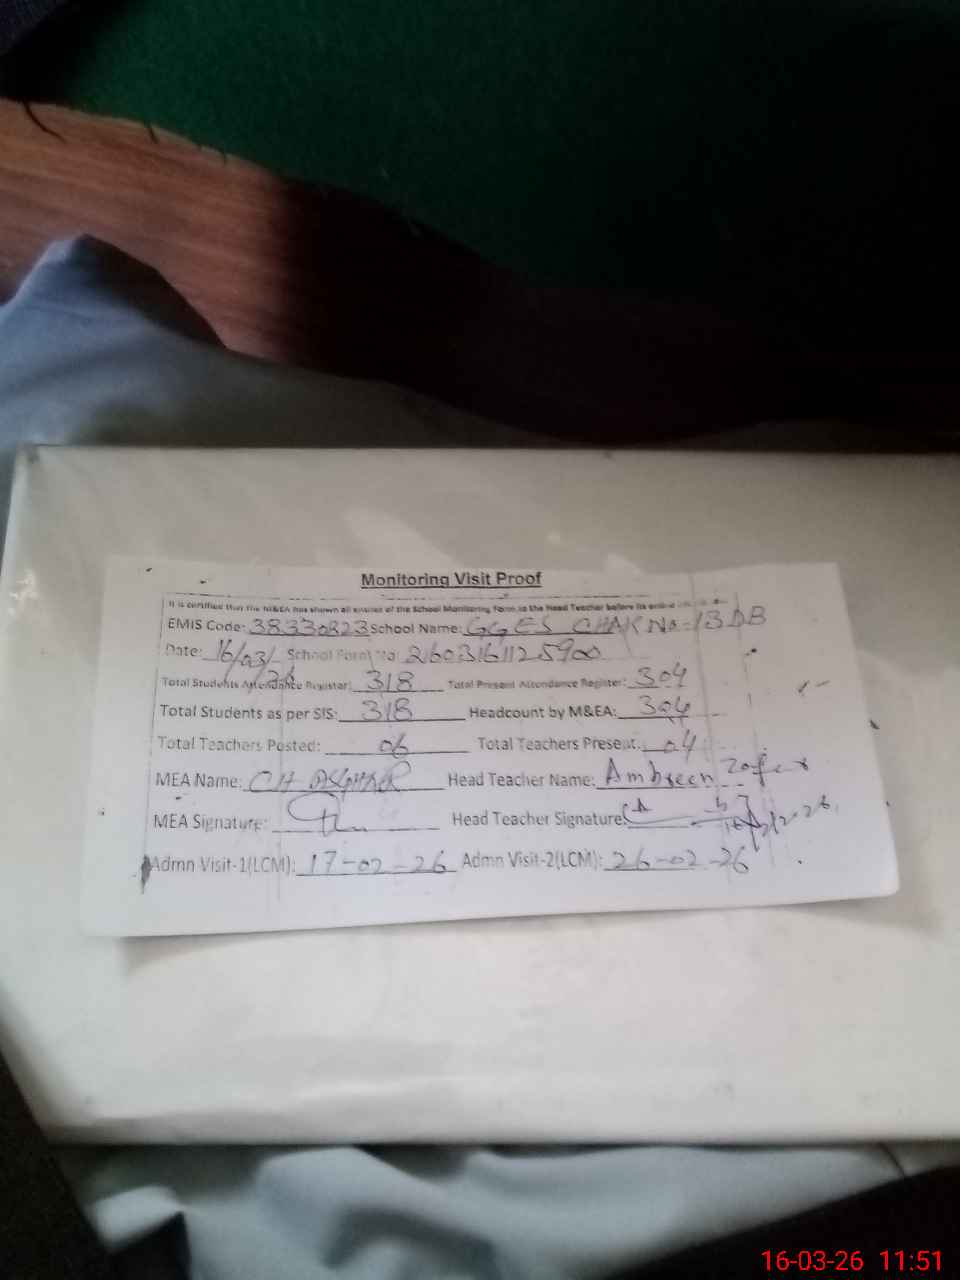 Monitoring Visit Proof
It is certified that the M&EA has shown all entries of the School Monitoring Form to the Head Teacher before its
EMIS Code: 38330823 School Name: GGES CHAK No-13 DB
Date: 16/03/26 School Form No: 21603161125900
Total Students Attendance Register: 318 Total Present Attendance Register: 304
Total Students as per SIS: 318 Headcount by M&EA: 304
Total Teachers Posted: 06 Total Teachers Present: 04
MEA Name: CH ASGHAR Head Teacher Name: Ambreen Zafar
MEA Signature: Head Teacher Signature:
Admn Visit-1(LCM): 17-02-26 Admn Visit-2(LCM): 26-02-26
16-03-26 11:51